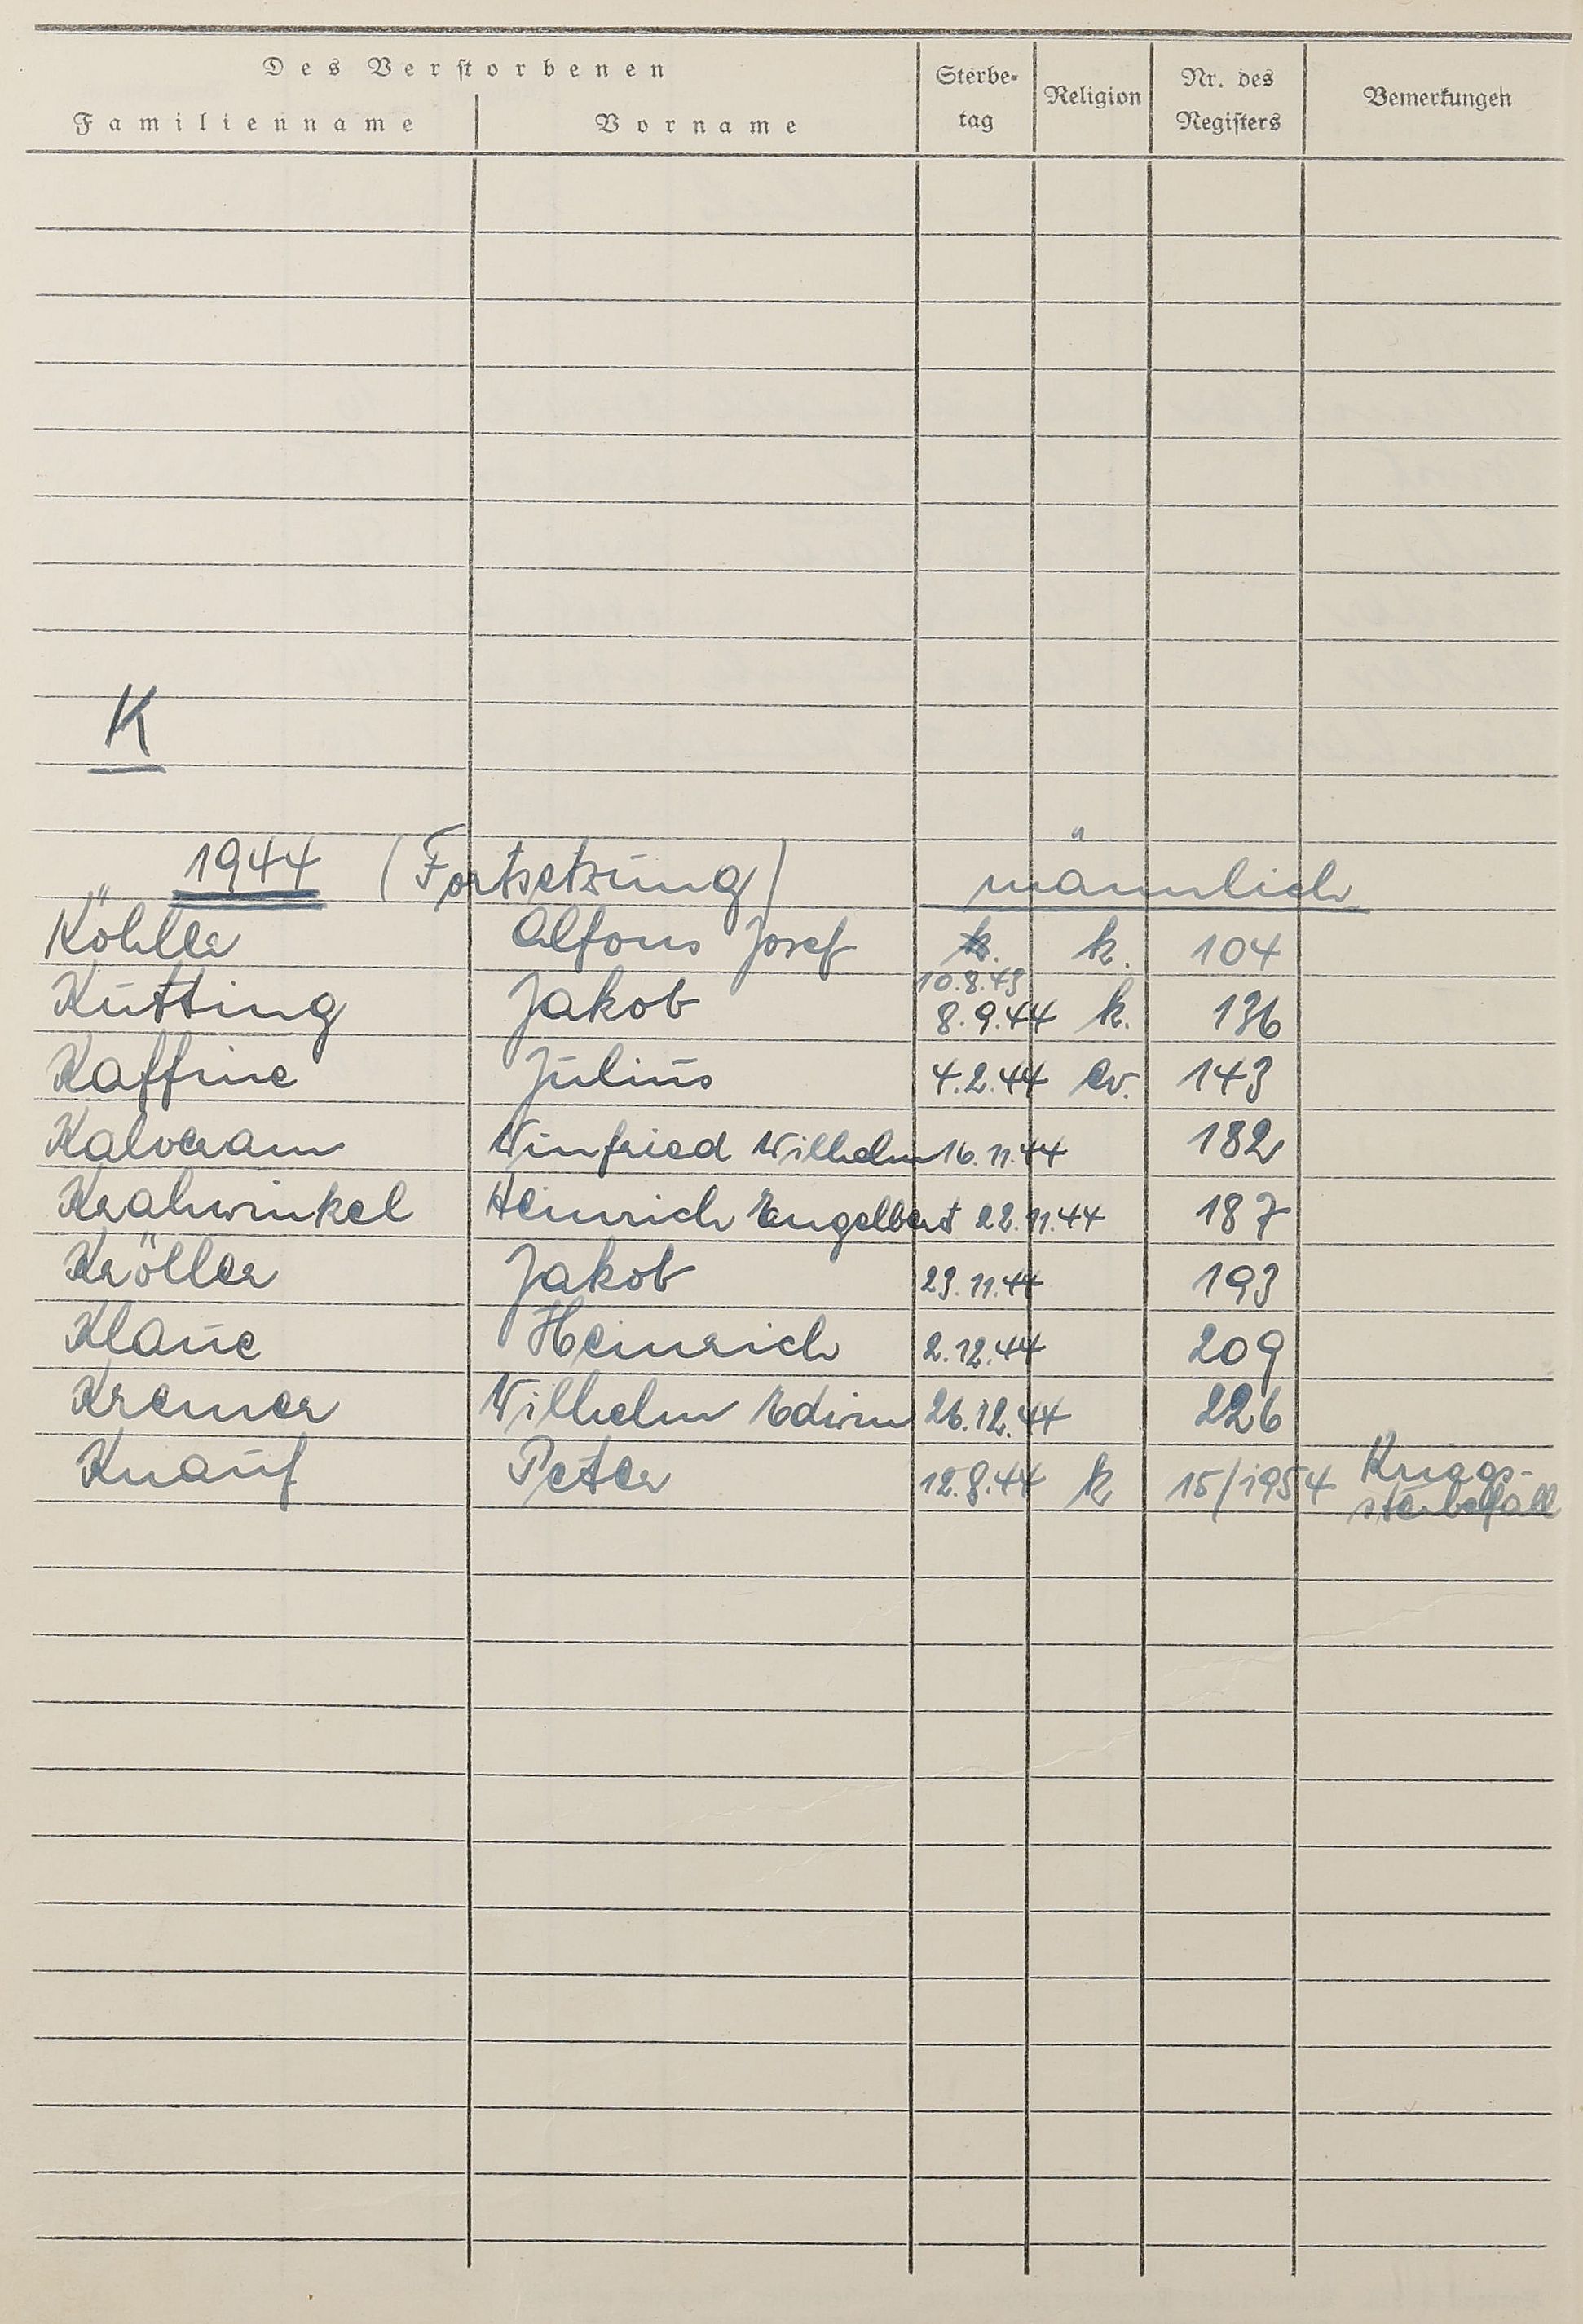 Des Verstorbenen
Familienname Vorname Sterbe-tag Religion Nr. des Registers Bemerkungen
K
1944 (Fortsetzung) männlich
Köhler Alfons Josef k. 10.8.43 k. 104
Kutting Jakob 8.9.44 k. 136
Kaffine Julius 4.2.44 ev. 143
Kalveram Winfried Wilhelm 16.11.44 182
Krahwinkel Heinrich Engelbert 22.11.44 187
Kröller Jakob 23.11.44 193
Klaue Heinrich 2.12.44 209
Kremer Wilhelm Edwin 26.12.44 226
Knauf Peter 12.8.44 k 15/1954 Kriegs-
sterbefall